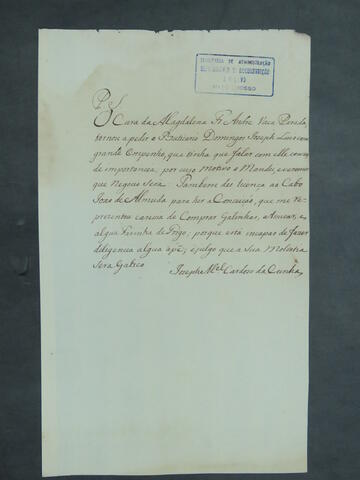 SECRETARIA DE ADMINISTRAÇÃO
MATO GROSSO
P. S.
O Cura da Magdalena Fr. Andre Vaca Pereda,
tornou a pedir o Praticario Domingos Joseph Luis com
grande Empenho, que tinha que falar com elle, couza
de importancia, por cujo motivo o Mandei, e veremos
que Negocio Sera. Tambem dei licença ao Cabo
João de Almeida para hir a Conceição, que me re-
prezentou careçia de Comprar Galinhas, Asucar, e
algua Farinha de Trigo; porque está incapas de fazer
diligencia algua a pé; e julgo que a Sua Molestia
Sera Galico
Joseph Mel. Cardozo da Cunha